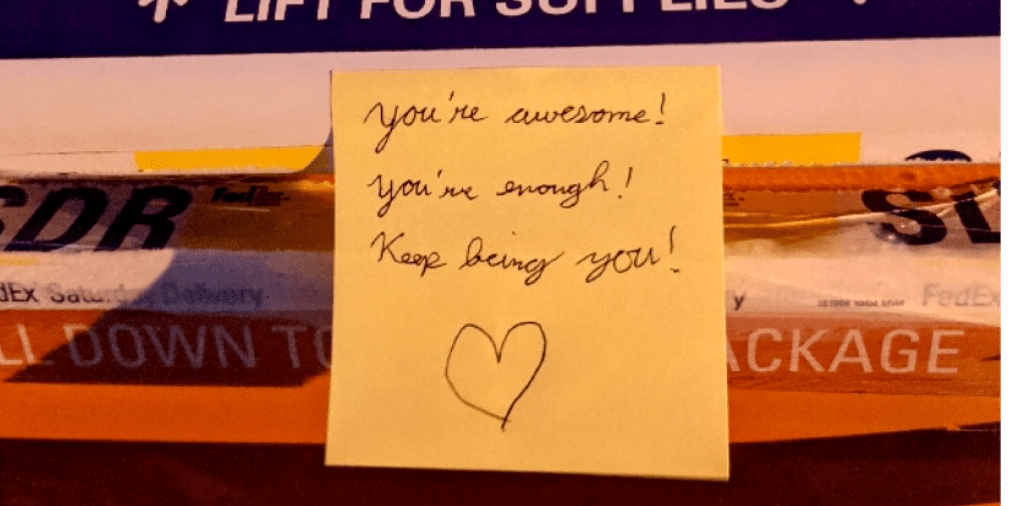 LIFT FOR SUPPLIES
you're awesome!
you're enough!
Keep being you!
SDR
FedEx
dEx Saturday Delivery
FedEx
LL DOWN TO
ACKAGE